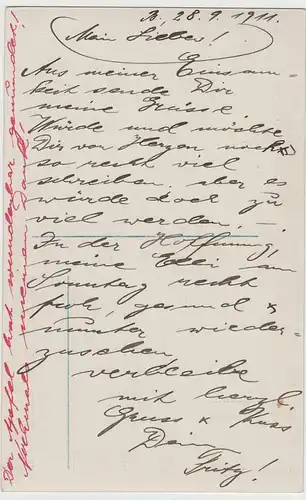 B., 28.9.1911.
Mein Lieber!
Aus meiner Einsam-
keit sende Dir
meine Grüsse
Würde und möchte
Dir von Herzen noch
so recht viel
schreiben, aber es
würde doch zu
viel werden. –
In der Hoffnung,
meine Elli am
Sonntag recht
froh, gesund &
munter wieder-
zusehen
verbleibe
mit herzl.
Gruss & Kuss
Dein
Fritz!
Der Apfel hat wunderbar gemundet!
Nochmal meinen Dank!